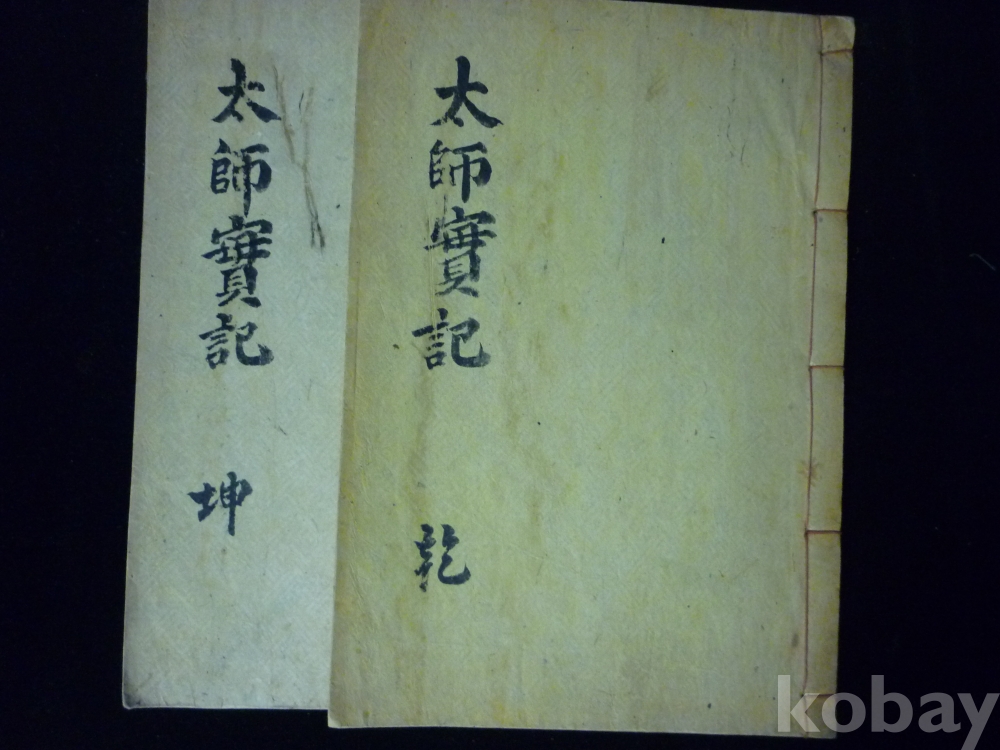 太師實記
乾
太師實記
坤
kobay